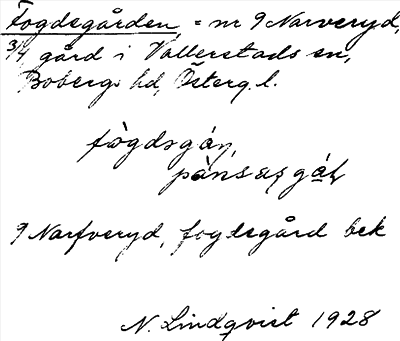 Fogdegården, = nr 9 Narveryd,
3/4 gård i Vallerstads sn,
Bobergs hd, Österg. l.
fògdsgáṇ,
9 Narfveryd, fogdegård bek
N. Lindqvist 1928